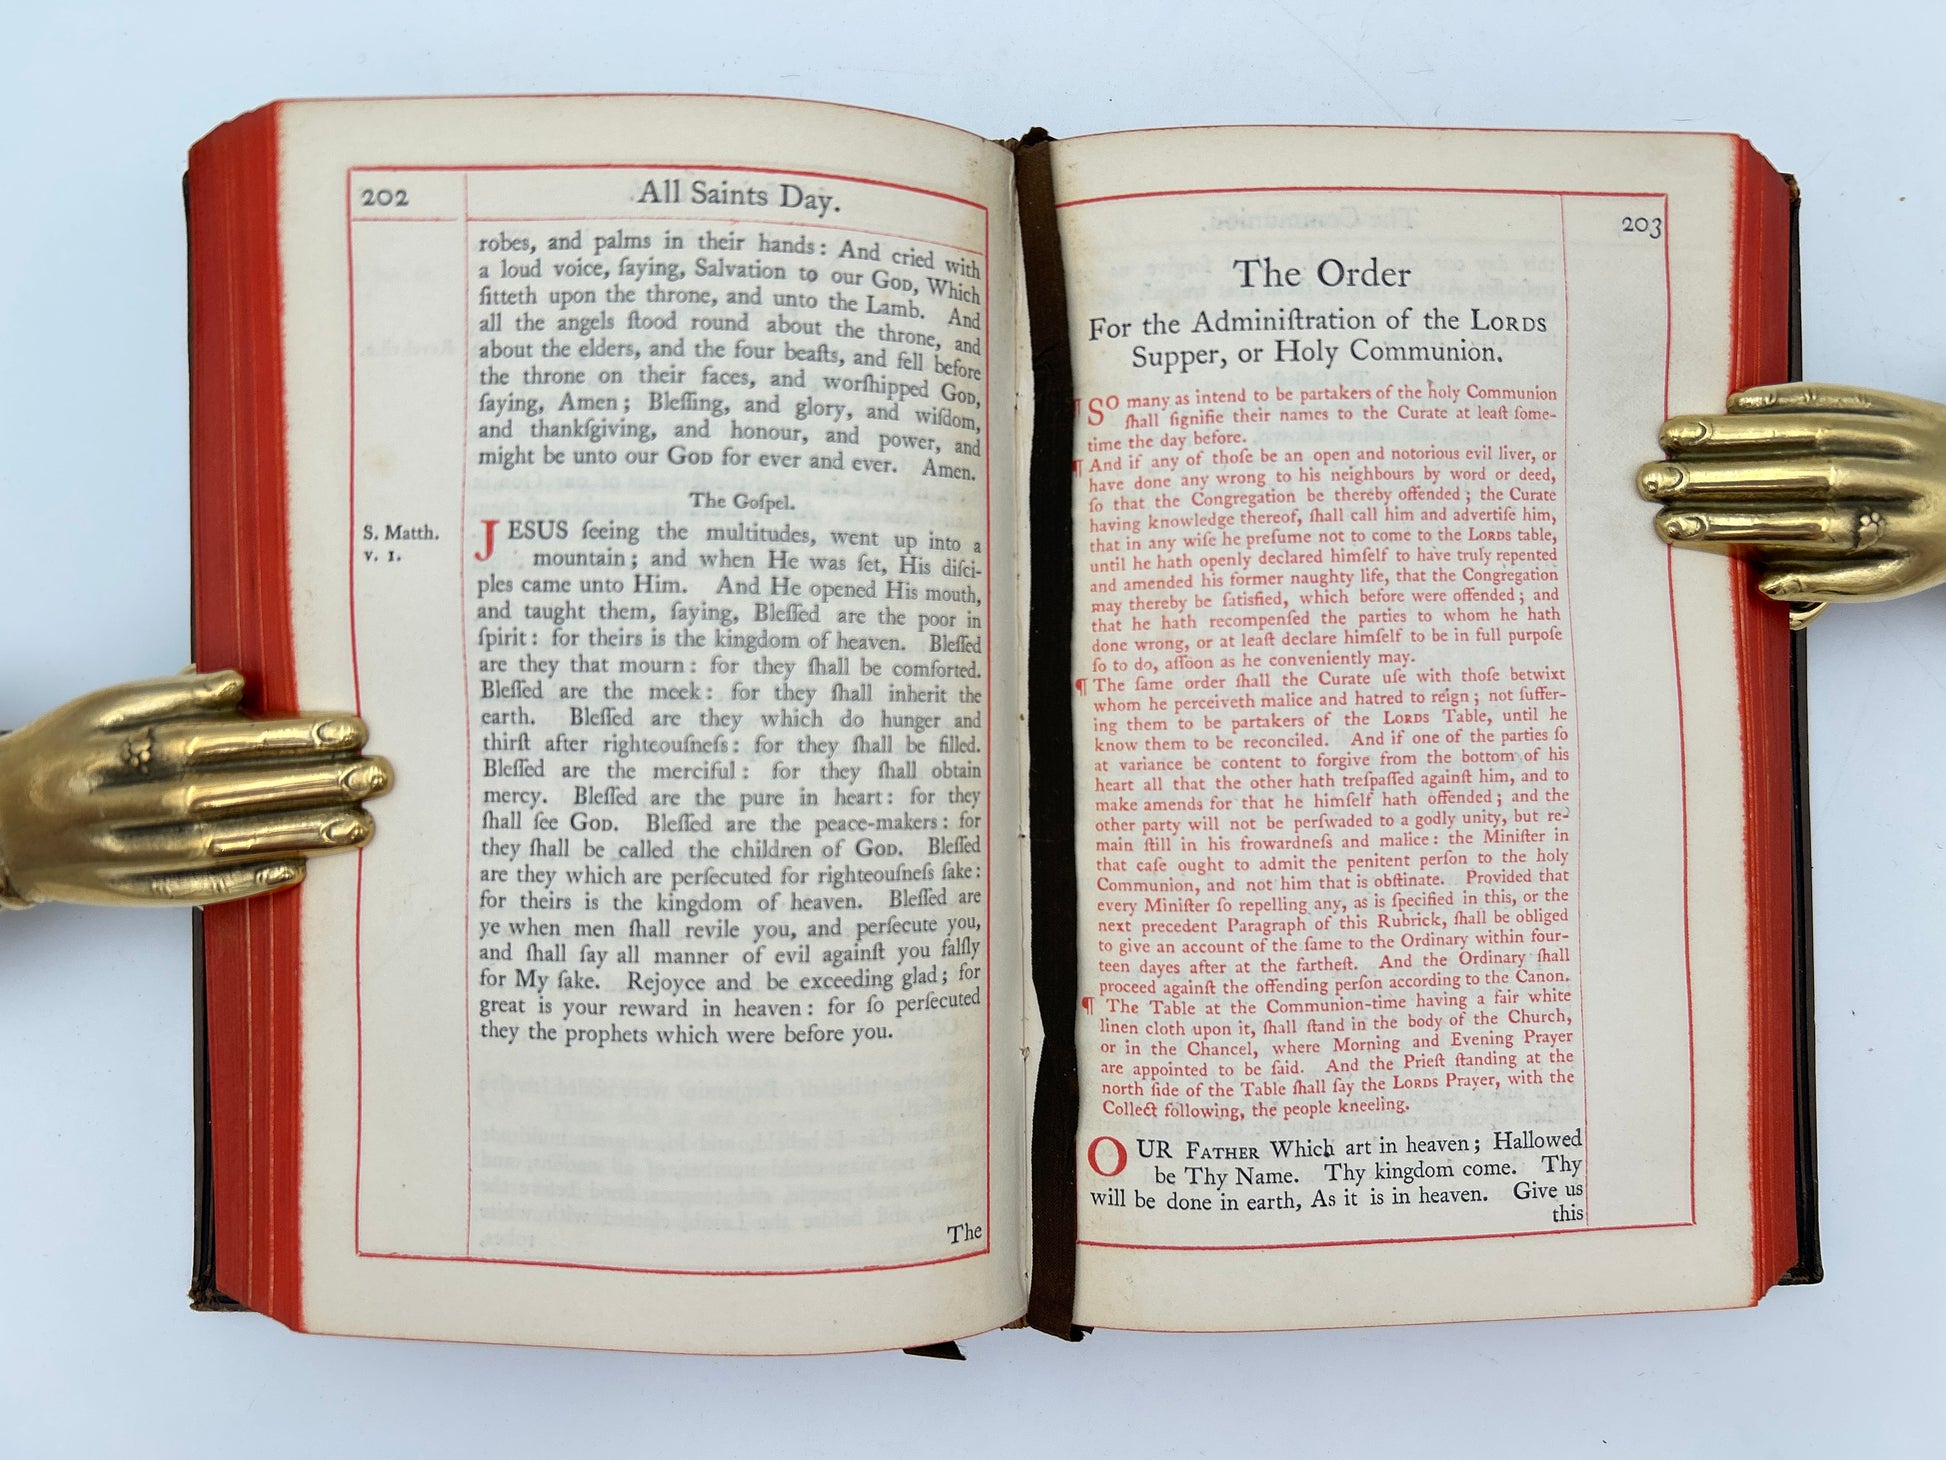 202
All Saints Day.
robes, and palms in their hands: And cried with
a loud voice, ſaying, Salvation to our GOD, Which
ſitteth upon the throne, and unto the Lamb. And
all the angels ſtood round about the throne, and
about the elders, and the four beaſts, and fell before
the throne on their faces, and worſhipped GOD,
ſaying, Amen; Bleſſing, and glory, and wiſdom,
and thankſgiving, and honour, and power, and
might be unto our GOD for ever and ever. Amen.
The Goſpel.
S. Matth.
v. 1.
JESUS ſeeing the multitudes, went up into a
mountain; and when He was ſet, His diſci-
ples came unto Him. And He opened His mouth,
and taught them, ſaying, Bleſſed are the poor in
ſpirit: for theirs is the kingdom of heaven. Bleſſed
are they that mourn: for they ſhall be comforted.
Bleſſed are the meek: for they ſhall inherit the
earth. Bleſſed are they which do hunger and
thirſt after righteouſneſs: for they ſhall be filled.
Bleſſed are the merciful: for they ſhall obtain
mercy. Bleſſed are the pure in heart: for they
ſhall ſee GOD. Bleſſed are the peace-makers: for
they ſhall be called the children of GOD. Bleſſed
are they which are perſecuted for righteouſneſs ſake:
for theirs is the kingdom of heaven. Bleſſed are
ye when men ſhall revile you, and perſecute you,
and ſhall ſay all manner of evil againſt you falſly
for My ſake. Rejoyce and be exceeding glad; for
great is your reward in heaven: for ſo perſecuted
they the prophets which were before you.
The
203
The Order
For the Adminiſtration of the LORDS
Supper, or Holy Communion.
¶ SO many as intend to be partakers of the holy Communion
ſhall ſignifie their names to the Curate at leaſt ſome-
time the day before.
¶ And if any of thoſe be an open and notorious evil liver, or
have done any wrong to his neighbours by word or deed,
ſo that the Congregation be thereby offended; the Curate
having knowledge thereof, ſhall call him and advertiſe him,
that in any wiſe he preſume not to come to the LORDS table,
until he hath openly declared himſelf to have truly repented
and amended his former naughty life, that the Congregation
may thereby be ſatisfied, which before were offended; and
that he hath recompenſed the parties to whom he hath
done wrong, or at leaſt declare himſelf to be in full purpoſe
ſo to do, aſſoon as he conveniently may.
¶ The ſame order ſhall the Curate uſe with thoſe betwixt
whom he perceiveth malice and hatred to reign; not ſuffer-
ing them to be partakers of the LORDS Table, until he
know them to be reconciled. And if one of the parties ſo
at variance be content to forgive from the bottom of his
heart all that the other hath treſpaſſed againſt him, and to
make amends for that he himſelf hath offended; and the
other party will not be perſwaded to a godly unity, but re-
main ſtill in his frowardneſs and malice: the Miniſter in
that caſe ought to admit the penitent perſon to the holy
Communion, and not him that is obſtinate. Provided that
every Miniſter ſo repelling any, as is ſpecified in this, or the
next precedent Paragraph of this Rubrick, ſhall be obliged
to give an account of the ſame to the Ordinary within four-
teen dayes after at the fartheſt. And the Ordinary ſhall
proceed againſt the offending perſon according to the Canon.
¶ The Table at the Communion-time having a fair white
linen cloth upon it, ſhall ſtand in the body of the Church,
or in the Chancel, where Morning and Evening Prayer
are appointed to be ſaid. And the Prieſt ſtanding at the
north ſide of the Table ſhall ſay the LORDS Prayer, with the
Collect following, the people kneeling.
OUR FATHER Which art in heaven; Hallowed
be Thy Name. Thy kingdom come. Thy
will be done in earth, As it is in heaven. Give us
this